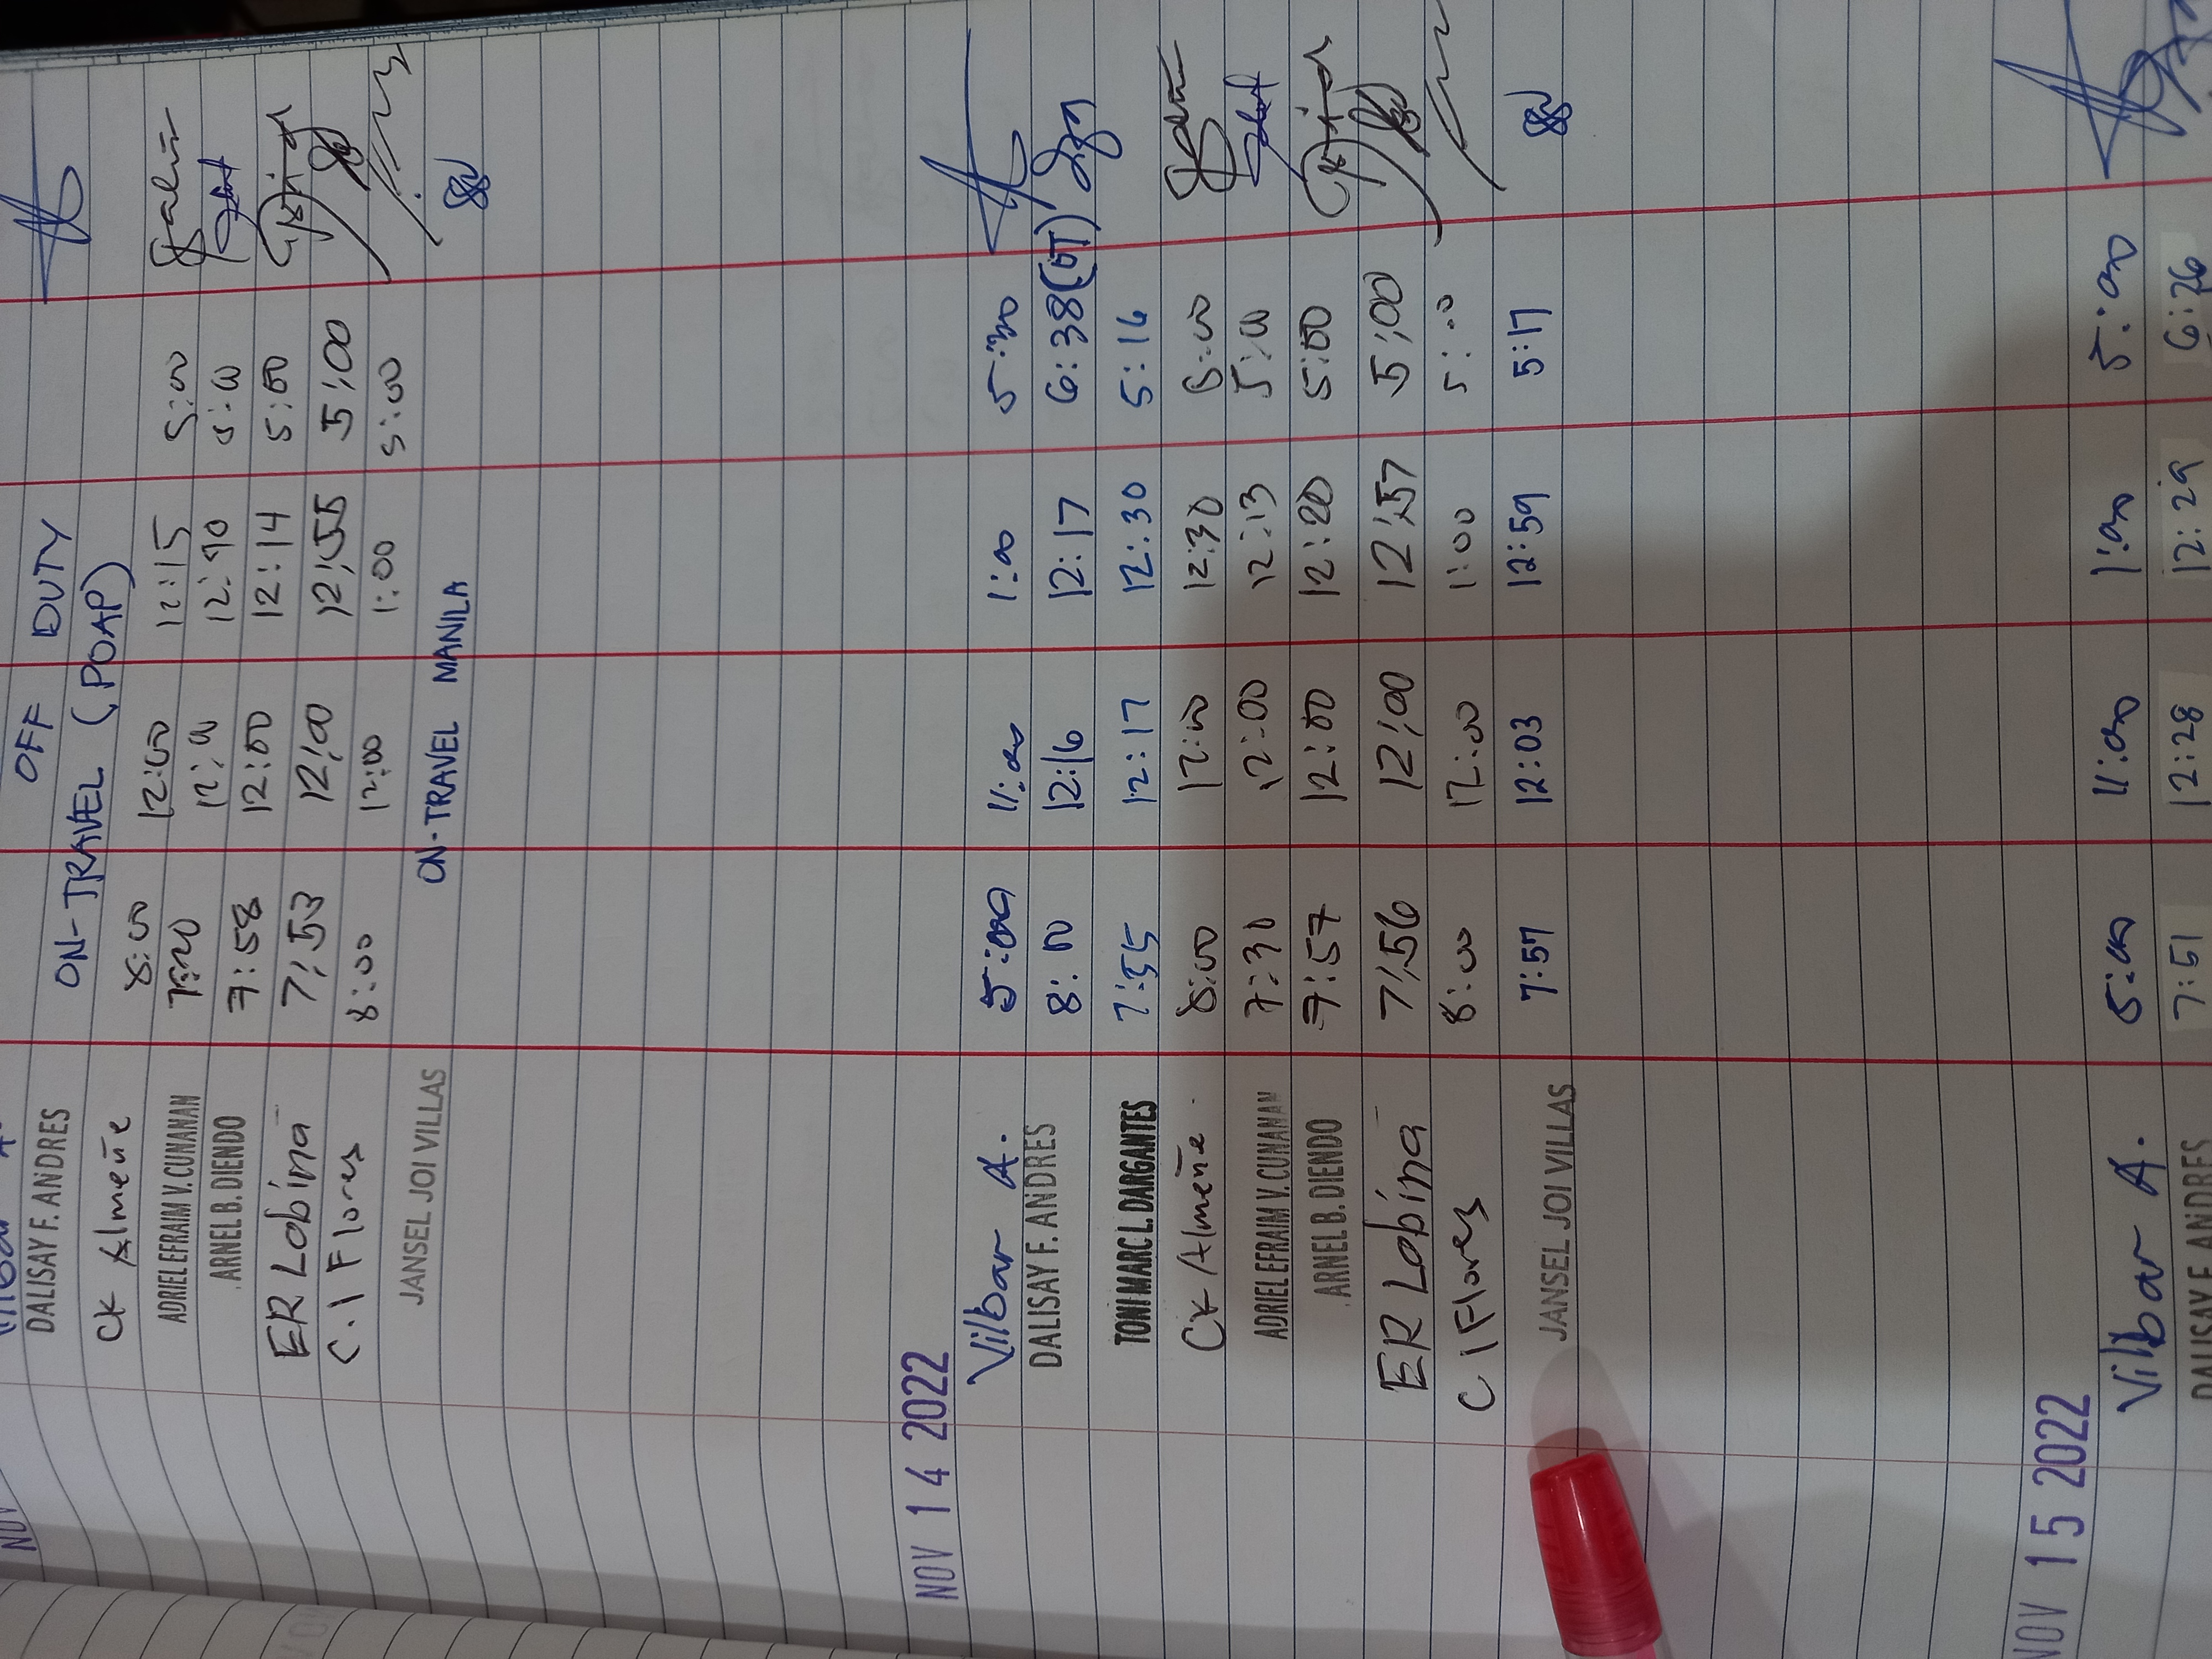 NOV
Vilbar A. OFF DUTY
DALISAY F. ANDRES ON-TRAVEL (POAP)
CK Almeñe 8:00 12:00 12:15 5:00
ADRIEL EFRAIM V. CUNANAN 7:20 12:00 12:10 5:00
ARNEL B. DIENDO 7:58 12:00 12:14 5:00
ER Lobina 7:53 12:00 12:55 5:00
C.I Flores 8:00 12:00 1:00 5:00
JANSEL JOI VILLAS ON-TRAVEL MANILA
NOV 14 2022
Vilbar A. 5:00 11:00 1:00
DALISAY F. ANDRES 8:00 12:16 12:17 6:38(OT)
TONI MARC L. DARGANTES 7:55 12:17 12:30 5:16
CK Almeñe 8:00 12:00 12:30 5:00
ADRIEL EFRAIM V. CUNANAN 7:30 12:00 12:13 5:00
ARNEL B. DIENDO 7:57 12:00 12:20 5:00
ER Lobina 7:56 12:00 12:57 5:00
C I Flores 8:00 12:00 1:00 5:00
JANSEL JOI VILLAS 7:57 12:03 12:59 5:17
NOV 15 2022
Vilbar A. 5:00 11:00 1:00 5:00
DALISAY F. ANDRES 7:51 12:28 12:29 6:26